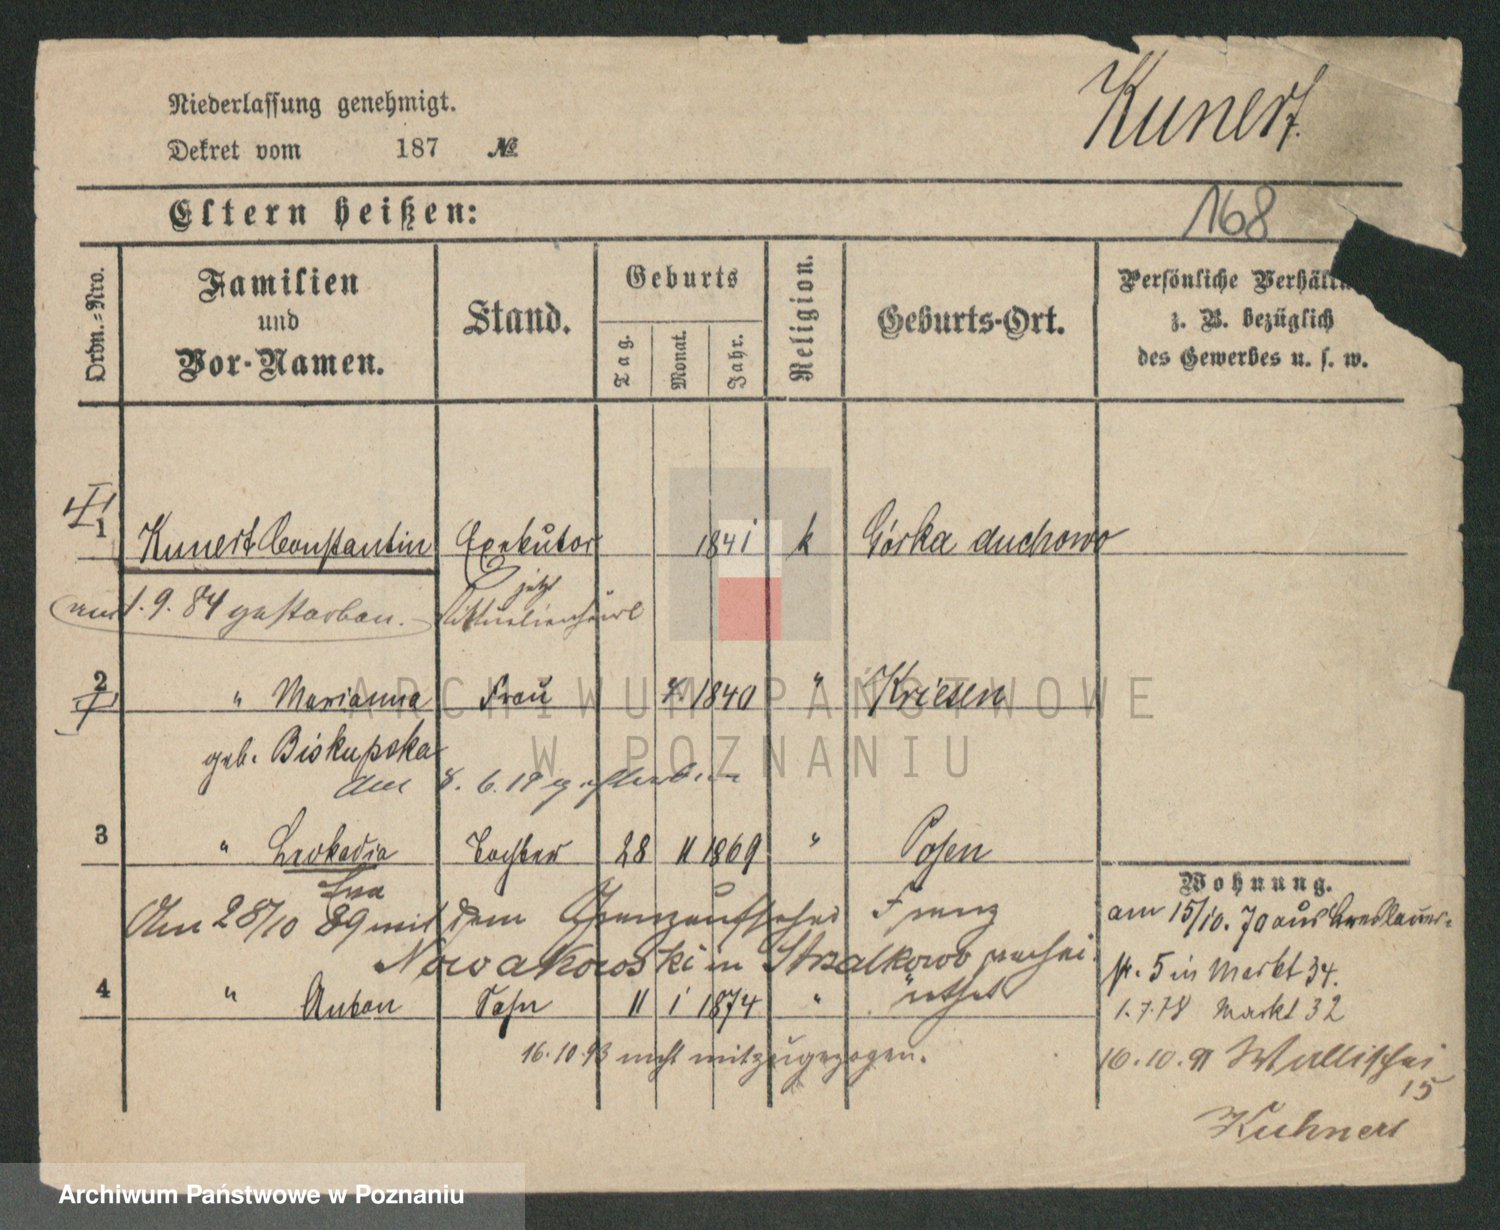 Niederlassung genehmigt.
Kunert.
Dekret vom 187 №
Eltern heißen:
168
Ordn.-Nro.
Familien
und
Vor-Namen.
Stand.
Geburts
Tag.
Monat.
Jahr.
Religion.
Geburts-Ort.
Persönliche Verhält
z. B. bezüglich
des Gewerbes u. s. w.
I
1 Kunert Constantin Exekutor 1841 k Górka duchowo
am 1. 9. 84 gestorben. jetzt
2 " Marianna Frau 1840 " Kriesen
II
geb. Biskupska
am 8. 6. 19 gestorben
3 " Leokadia Tochter 28 11 1869 " Posen
Wohnung.
Am 28/10 89 mit dem Grenzaufseher Franz
Nowakowski in Strzalkowo verhei-
rathet
am 15/10. 70 aus Breslauer-
str. 5 in Markt 34.
4 " Anton Sohn 11 1 1874 " "
1. 7. 78 Markt 32
16. 10. 93 nicht mitzugezogen.
16. 10. 91 Wallischei
15
Kuhnert
ARCHIWUM PAŃSTWOWE
W POZNANIU
Archiwum Państwowe w Poznaniu